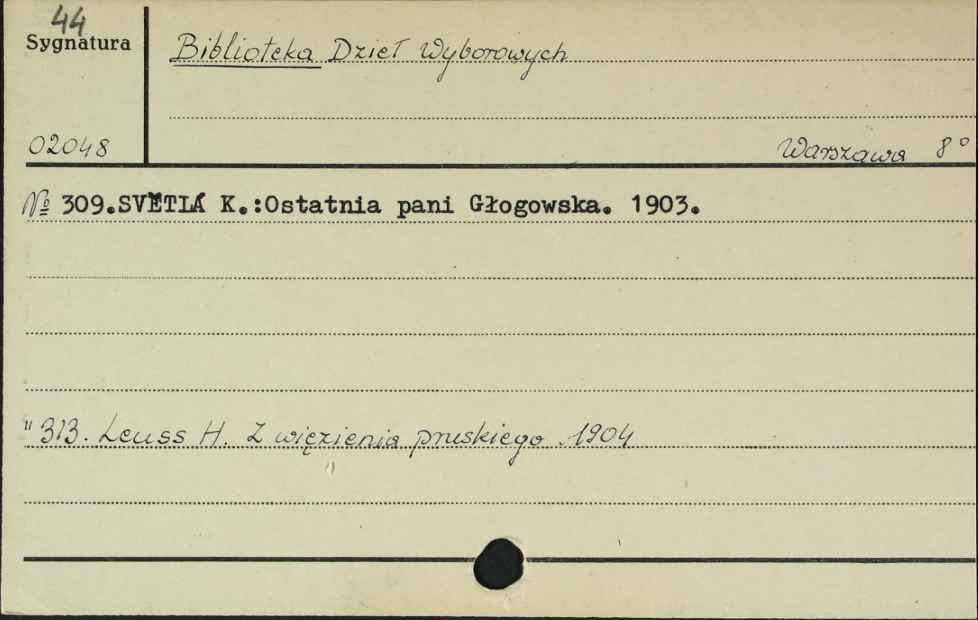 44
Sygnatura
Biblioteka Dzieł Wyborowych
02048
Warszawa 8°
№ 309.SVĚTLÁ K.:Ostatnia pani Głogowska. 1903.
" 313. Leuss H. Z więzienia pruskiego. 1904